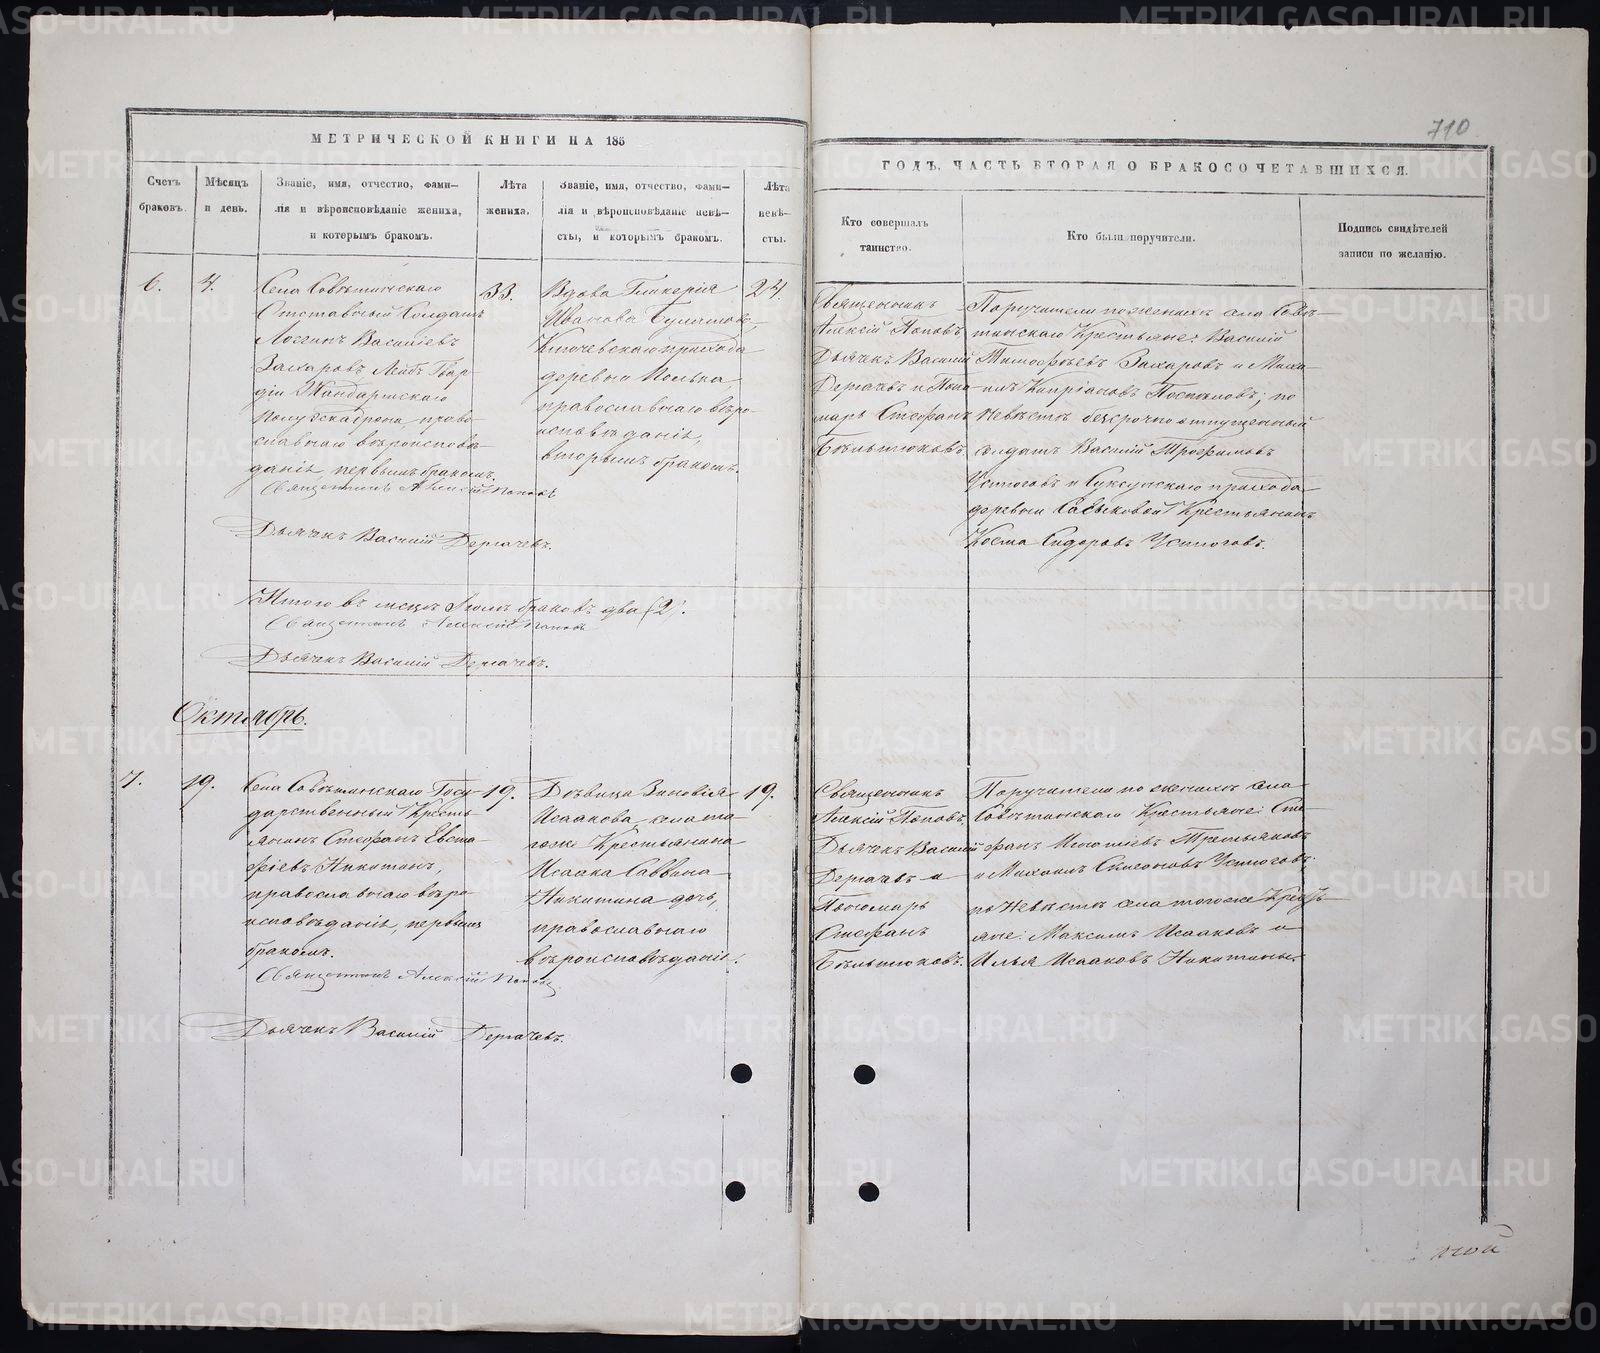 710
МЕТРИЧЕСКОЙ КНИГИ НА 185
ГОДЪ, ЧАСТЬ ВТОРАЯ О БРАКОСОЧЕТАВШИХСЯ.
Счетъ браковъ.
Мѣсяцъ и день.
Званіе, имя, отчество, фами-
лія и вѣроисповѣданіе жениха,
и которымъ бракомъ.
Лѣта жениха.
Званіе, имя, отчество, фами-
лія и вѣроисповѣданіе невѣ-
сты, и которымъ бракомъ.
Лѣта невѣ-
сты.
Кто совершалъ
таинство.
Кто были поручители.
Подпись свидѣтелей
записи по желанію.
6.
4.
Села Совѣтинскаго
Отставный Солдатъ
Логинъ Василіевъ
Захаровъ Лейбъ Гвар-
діи Жандармскаго
Полуэскадрона, право-
славнаго вѣроисповѣ-
данія, первымъ бракомъ.
33.
Вдова Гликерія
Иванова
Ключевскаго прихода
деревни
православнаго вѣро-
исповѣданія,
вторымъ бракомъ.
24.
Священникъ
Алексій Поповъ
Дьячекъ Василій
Дергачевъ и Поно-
марь Стефанъ
Бѣльтюковъ.
Поручители по женихѣ села Совѣ-
тинскаго Крестьяне: Василій
Тимофѣевъ Захаровъ и Миха-
илъ Кипріановъ Поспѣловъ; по
Невѣстѣ безсрочноотпущенный
солдатъ Василій Трофимовъ
Устюговъ и Суксунскаго прихода
деревни Савковой Крестьянинъ
Косма Сидоровъ Устюговъ.
Священникъ Алексій Поповъ
Дьячекъ Василій Дергачевъ.
Итого въ мсцѣ Іюлѣ браковъ два (2).
Священникъ Алексій Поповъ
Дьячекъ Василій Дергачевъ.
Октябрь.
7.
19.
Села Совѣтинскаго Госу-
дарственный Кресть-
янинъ Стефанъ Евста-
фіевъ Никитинъ,
православнаго вѣро-
исповѣданія, первымъ
бракомъ.
19.
Дѣвица Зиновія
Исаакова, села то-
гоже Крестьянина
Исаака Саввина
Никитина дочь,
православнаго
вѣроисповѣданія.
19.
Священникъ
Алексій Поповъ,
Дьячекъ Василій
Дергачевъ и
Пономарь
Стефанъ
Бѣльтюковъ.
Поручители по женихѣ села
Совѣтинскаго Крестьяне: Сте-
фанъ Третьяковъ
и Михаилъ Устюговъ
по Невѣстѣ села тогоже Кресть-
яне: Максимъ Исааковъ и
Илья Исааковъ Никитины.
Священникъ Алексій Поповъ
Дьячекъ Василій Дергачевъ.
METRIKI.GASO-URAL.RU